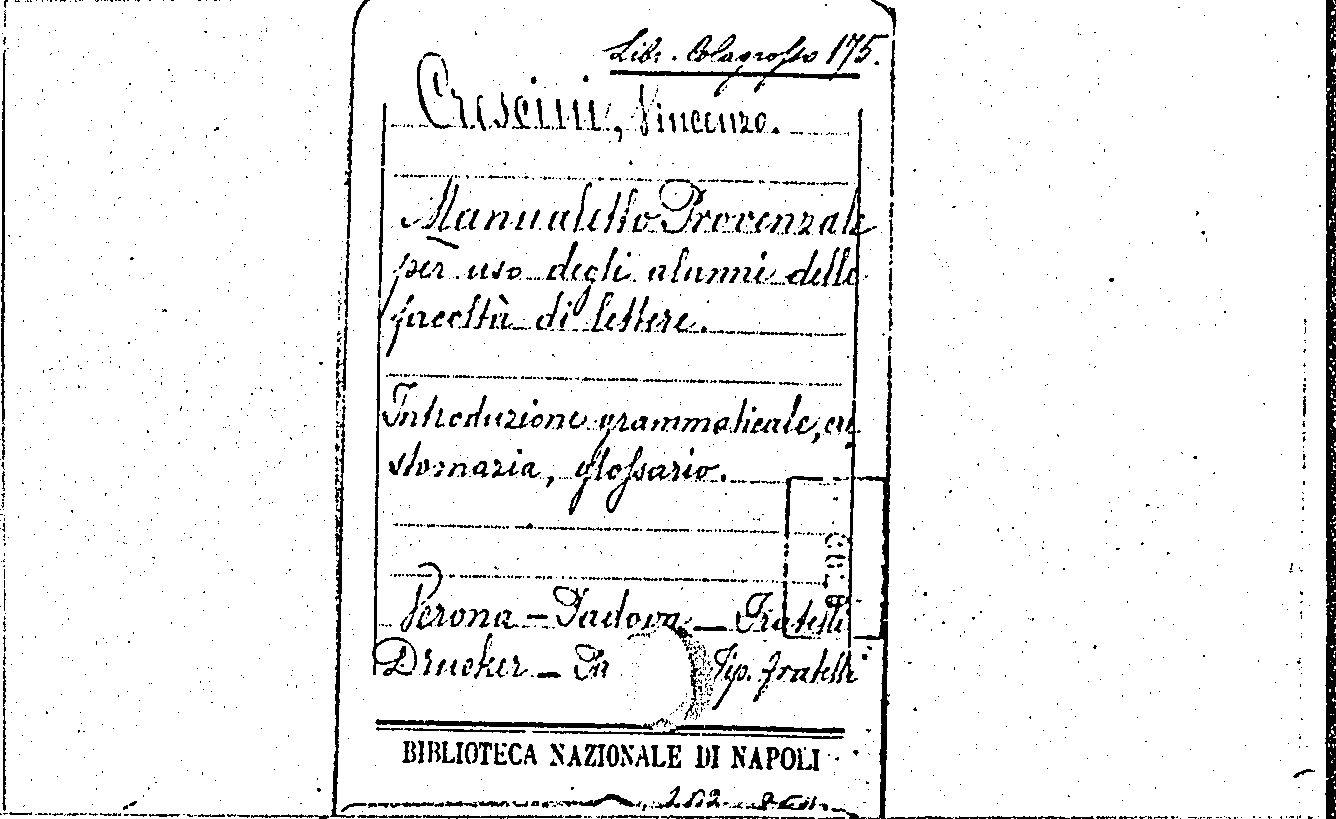 Libr. Colagrosso 175.
Crescini, Vincenzo.
Manualetto Provenzale
per uso degli alunni delle
facoltà di lettere.
Introduzione grammaticale, cre
stomazia, glossario.
Verona - Padova - Fratelli
Drucker - Tip. fratelli
BIBLIOTECA NAZIONALE DI NAPOLI